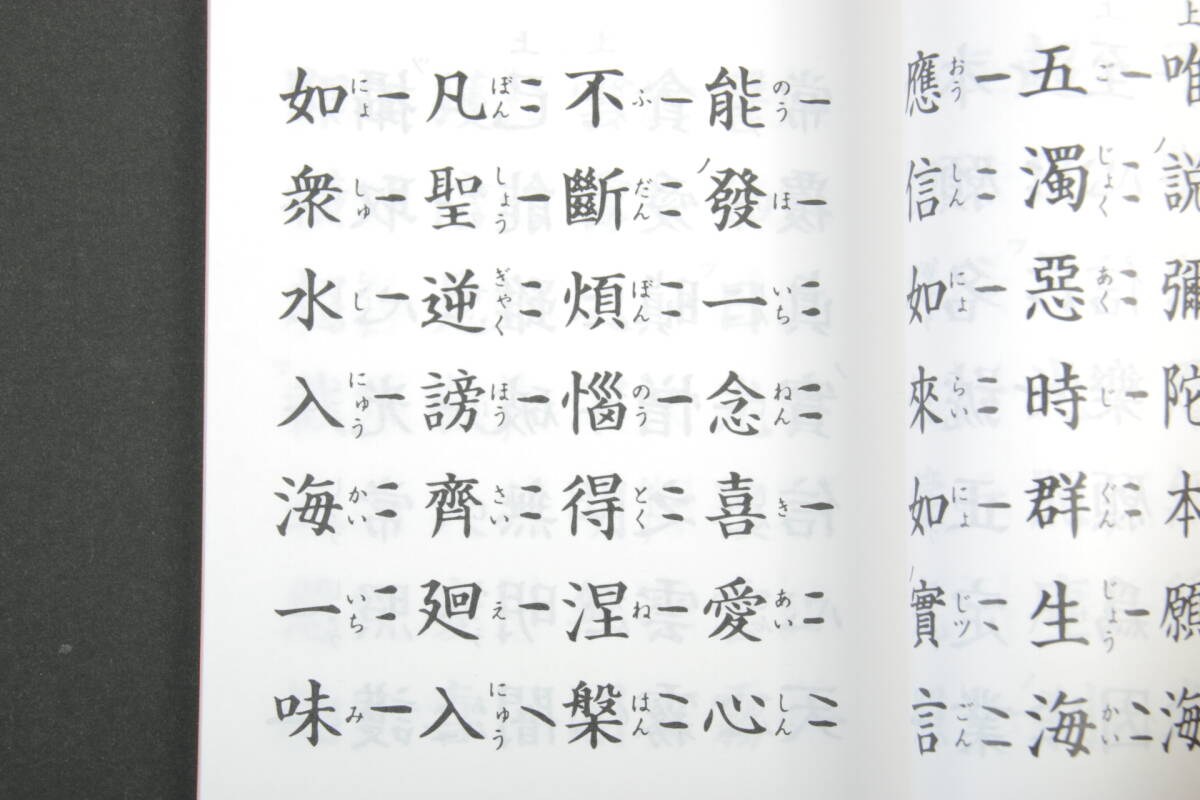 唯説彌陀本願海
五濁惡時群生海
ご じょく あく じ ぐん じょう かい
應信如來如實言
おう しん にょ らい にょ じツ ごん
能發一念喜愛心
のう ほ いち ねん き あい しん
不斷煩惱得涅槃
ふ だん ぼん のう とく ね はん
凡聖逆謗齊廻入
ぼん しょう ぎゃく ほう さい え にゅう
如衆水入海一味
にょ しゅ し にゅう かい いち み